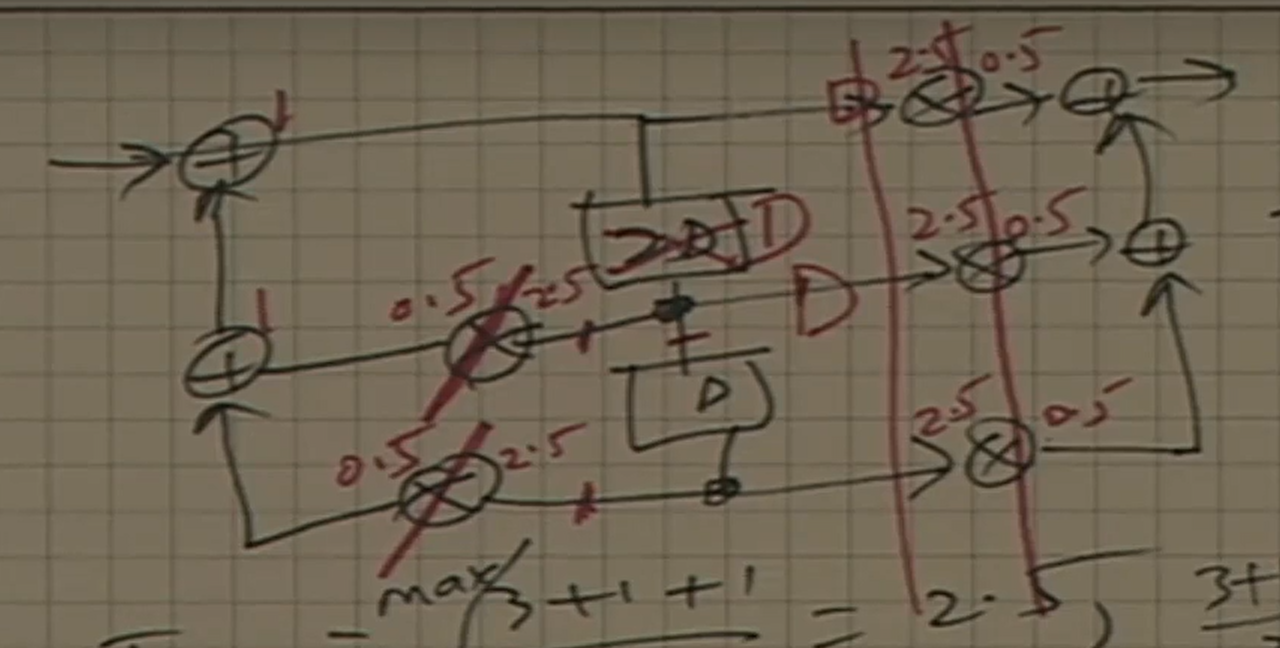 1 2.5 0.5
2.5 0.5
2D D
0.5 2.5 D
1
D
2.5 0.5
0.5 2.5
max(3+1+1 = 2.5, 3+